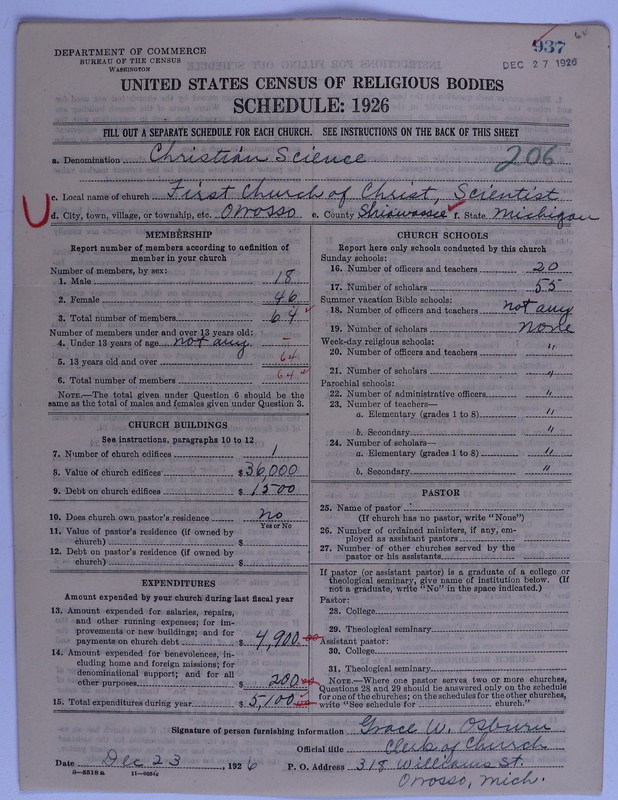 937
64
DEC 27 1926
DEPARTMENT OF COMMERCE
BUREAU OF THE CENSUS
WASHINGTON
UNITED STATES CENSUS OF RELIGIOUS BODIES
SCHEDULE: 1926
FILL OUT A SEPARATE SCHEDULE FOR EACH CHURCH. SEE INSTRUCTIONS ON THE BACK OF THIS SHEET
a. Denomination Christian Science 206
c. Local name of church First Church of Christ, Scientist
d. City, town, village, or township, etc. Owosso e. County Shiawassee f. State Michigan
MEMBERSHIP
Report number of members according to definition of
member in your church
Number of members, by sex:
1. Male 18
2. Female 46
3. Total number of members 64
Number of members under and over 13 years old:
4. Under 13 years of age not any –
5. 13 years old and over 64
6. Total number of members 64
NOTE.—The total given under Question 6 should be
same as the total of males and females given under Question 3.
CHURCH BUILDINGS
See instructions, paragraphs 10 to 12
7. Number of church edifices 1
8. Value of church edifices $ 36,000
9. Debt on church edifices $ 1500
10. Does church own pastor's residence no
Yes or No
11. Value of pastor's residence (if owned by
church) $
12. Debt on pastor's residence (if owned by
church) $
EXPENDITURES
Amount expended by your church during last fiscal year
13. Amount expended for salaries, repairs,
and other running expenses; for im-
provements or new buildings; and for
payments on church debt $ 4,900.00
14. Amount expended for benevolences, in-
cluding home and foreign missions; for
denominational support; and for all
other purposes $ 200.00
15. Total expenditures during year $ 5,100.00
CHURCH SCHOOLS
Report here only schools conducted by this church
Sunday schools:
16. Number of officers and teachers 20
17. Number of scholars 55
Summer vacation Bible schools:
18. Number of officers and teachers not any
19. Number of scholars none
Week-day religious schools:
20. Number of officers and teachers "
21. Number of scholars "
Parochial schools:
22. Number of administrative officers "
23. Number of teachers—
a. Elementary (grades 1 to 8) "
b. Secondary "
24. Number of scholars—
a. Elementary (grades 1 to 8) "
b. Secondary "
PASTOR
25. Name of pastor
(If church has no pastor, write "None")
26. Number of ordained ministers, if any, em-
ployed as assistant pastors
27. Number of other churches served by the
pastor or his assistants
If pastor (or assistant pastor) is a graduate of a college or
theological seminary, give name of institution below. (If
not a graduate, write "No" in the space indicated.)
Pastor:
28. College
29. Theological seminary
Assistant pastor:
30. College
31. Theological seminary
NOTE.—Where one pastor serves two or more churches,
Questions 28 and 29 should be answered only on the schedule
for one of the churches; on the schedules for the other churches,
write "See schedule for church."
Signature of person furnishing information Grace W. Osburn
Official title Clerk of Church
Date Dec 23, 1926 P. O. Address 318 Williams St.
8—8518 a
Owosso, Mich.